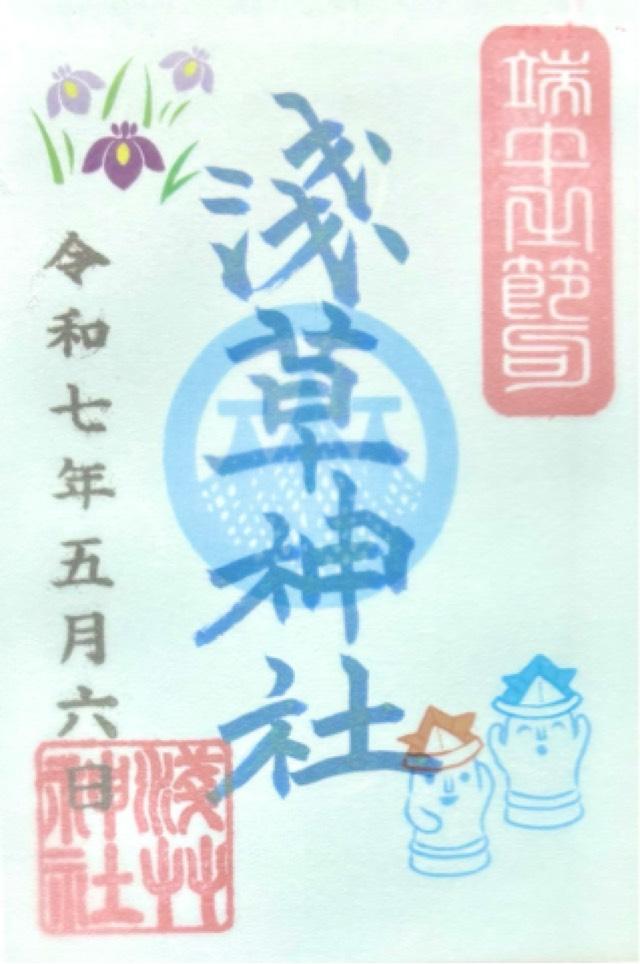 端午之節句
浅草神社
令和七年五月六日
浅草
神社